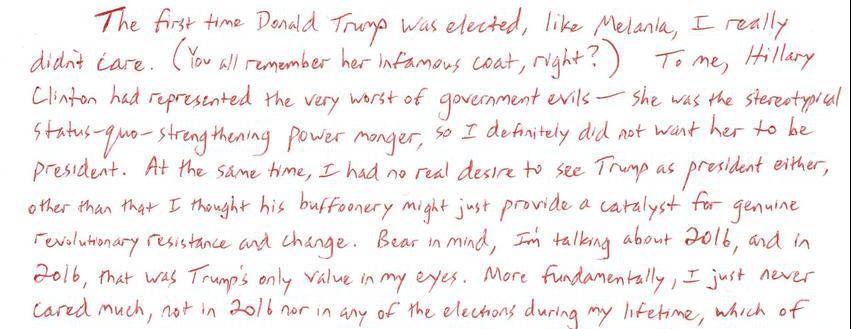 The first time Donald Trump was elected, like Melania, I really
didn't care. (You all remember her infamous coat, right?) To me, Hillary
Clinton had represented the very worst of government evils — she was the stereotypical
status-quo-strengthening power monger, so I definitely did not want her to be
president. At the same time, I had no real desire to see Trump as president either,
other than that I thought his buffoonery might just provide a catalyst for genuine
revolutionary resistance and change. Bear in mind, I'm talking about 2016, and in
2016, that was Trump's only value in my eyes. More fundamentally, I just never
cared much, not in 2016 nor in any of the elections during my lifetime, which of